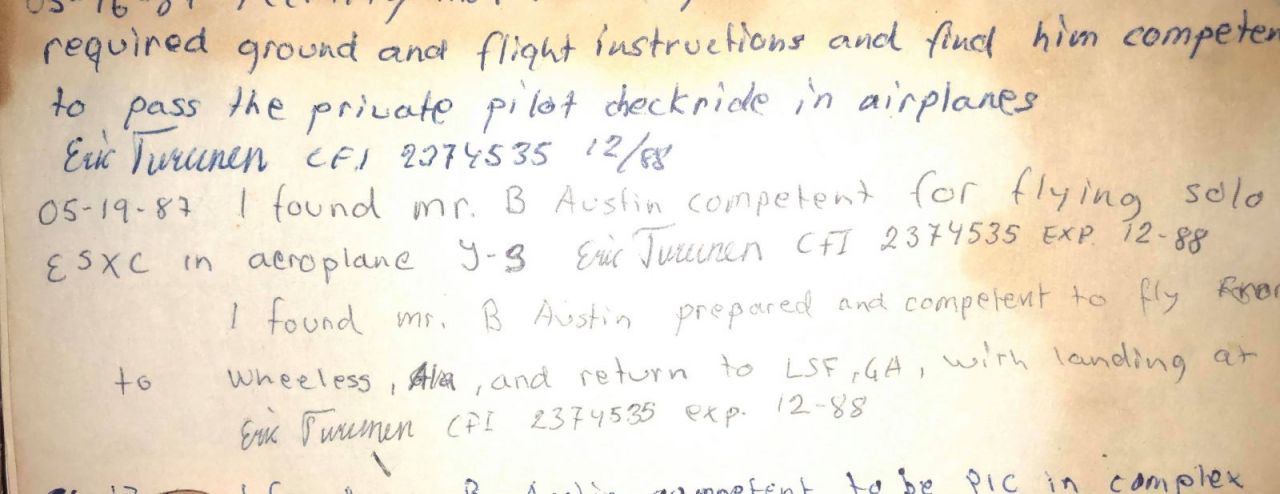 required ground and flight instructions and find him competen
to pass the private pilot checkride in airplanes
Eric Turunen CFI 2374535 12/88
05-19-87 I found mr. B Austin competent for flying solo
& SXC in aeroplane J-3 Eric Turunen CFI 2374535 EXP. 12-88
I found mr. B Austin prepared and competent to fly From
to Wheeless, Ala, and return to LSF, GA, with landing at
Eric Turunen CFI 2374535 exp. 12-88
B Austin competent to be PIC in complex